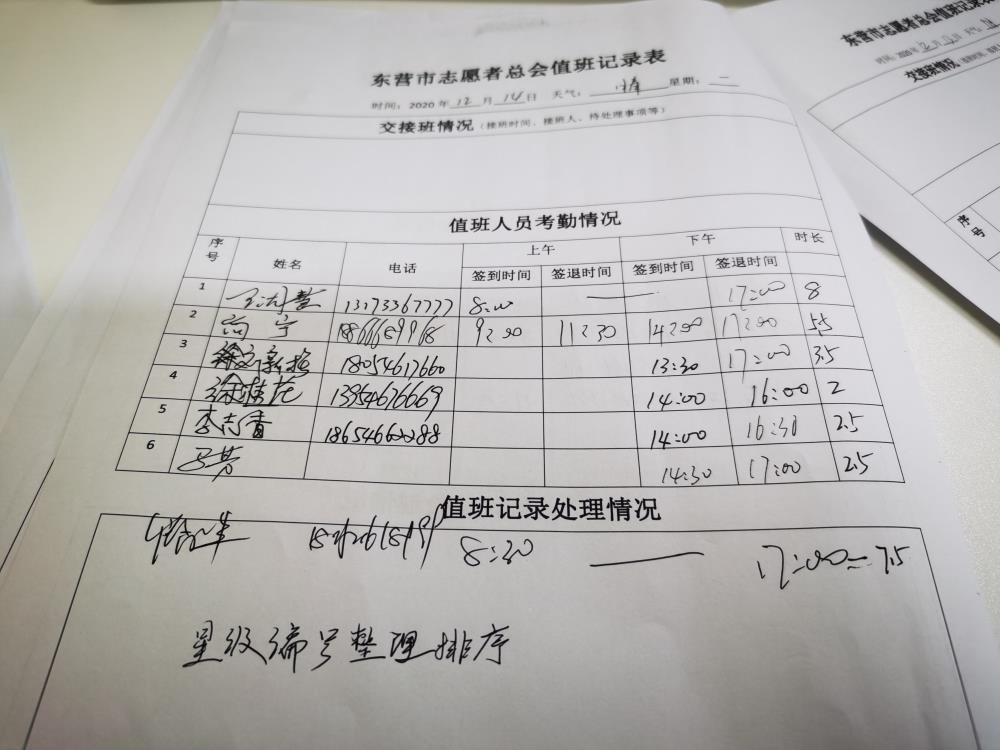 东营市志愿者总会值班记录表
时间：2020年12月14日 天气： 星期：二
交接班情况（接班时间、接班人、待处理事项等）
值班人员考勤情况
序号 姓名 电话 上午 下午 时长
签到时间 签退时间 签到时间 签退时间
1 13173367777 8:00 —— 17:00 8
2 高宁 18666189968 9:00 11:30 14:00 17:00 5.5
3 18054617660 13:30 17:00 3.5
4 徐桂花 13954676669 14:00 16:00 2
5 李志香 18654660088 14:00 16:30 2.5
6 14:30 17:00 2.5
值班记录处理情况
8:30 —— 17:00 7.5
星级编号整理排序
东营市志愿者总会值班记录表
交接班情况
序号